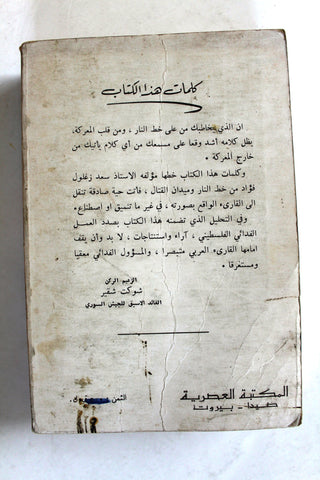 كلمات هذا الكتاب
ان الذي يخاطبك من على خط النار ، ومن قلب المعركة،
يظل كلامه أشد وقعا على مسمعك من أي كلام يأتيك من
خارج المعركة .
وكلمات هذا الكتاب خطها مؤلفه الاستاذ سعد زغلول
فؤاد من خط النار وميدان القتال ، فأتت حية صادقة تنقل
الى القارىء الواقع بصورته ، في غير ما تنميق أو اصطناع .
وفي التحليل الذي تضمنه هذا الكتاب بصدد العمل
الفدائي الفلسطيني ، آراء واستنتاجات ، لا بد وأن يقف
امامها القارىء العربي متبصرا ، والمسؤول الفدائي معقبا
ومستغرقا .
الزعيم الركن
شوكت شقير
القائد الاسبق للجيش السوري
المكتبة العصرية
صيدا - بيروت
الثمن